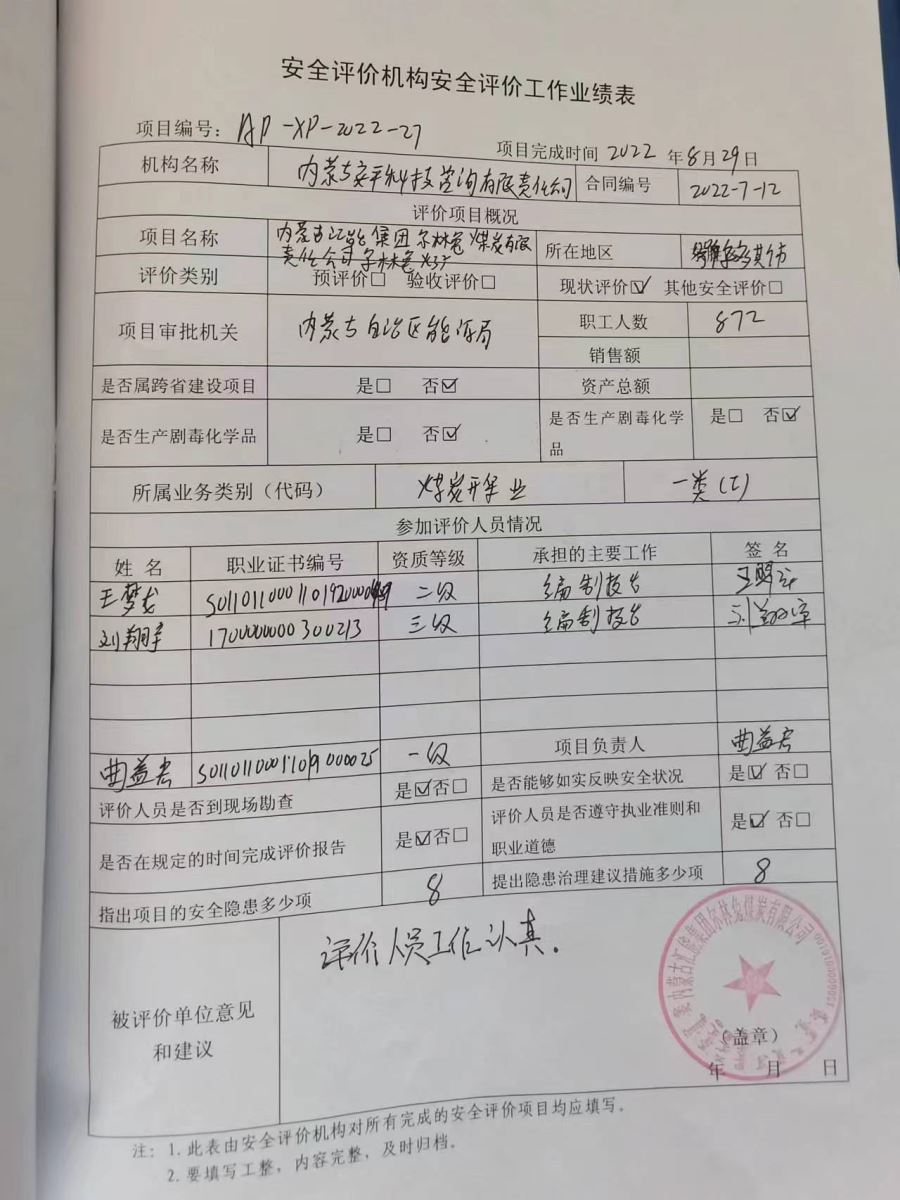 安全评价机构安全评价工作业绩表
项目编号：AP-XP-2022-27
项目完成时间 2022 年 8 月 29 日
机构名称 内蒙古安平科技咨询有限责任公司 合同编号 2022-7-12
评价项目概况
项目名称 内蒙古汇能集团尔林兔煤炭有限
责任公司尔林兔煤矿 所在地区 鄂尔多斯市
评价类别 预评价□ 验收评价□ 现状评价☑ 其他安全评价□
项目审批机关 内蒙古自治区能源局 职工人数 872
销售额
是否属跨省建设项目 是□ 否☑ 资产总额
是否生产剧毒化学品 是□ 否☑ 是否生产剧毒化学品 是□ 否☑
所属业务类别（代码） 煤炭开采业 一类(1)
参加评价人员情况
姓 名 职业证书编号 资质等级 承担的主要工作 签 名
王梦龙 二级 编制报告
刘翔宇 1700000000300213 三级 编制报告 刘翔宇
曲益宏 S011011000110191000025 一级 项目负责人 曲益宏
评价人员是否到现场勘查 是☑否□ 是否能够如实反映安全状况 是☑ 否□
是否在规定的时间完成评价报告 是☑否□ 评价人员是否遵守执业准则和
职业道德 是☑ 否□
指出项目的安全隐患多少项 8 提出隐患治理建议措施多少项 8
被评价单位意见
和建议
评价人员工作认真.
内蒙古汇能集团尔林兔煤炭有限公司
（盖章）
年 月 日
注：1. 此表由安全评价机构对所有完成的安全评价项目均应填写。
2. 要填写工整，内容完整，及时归档。